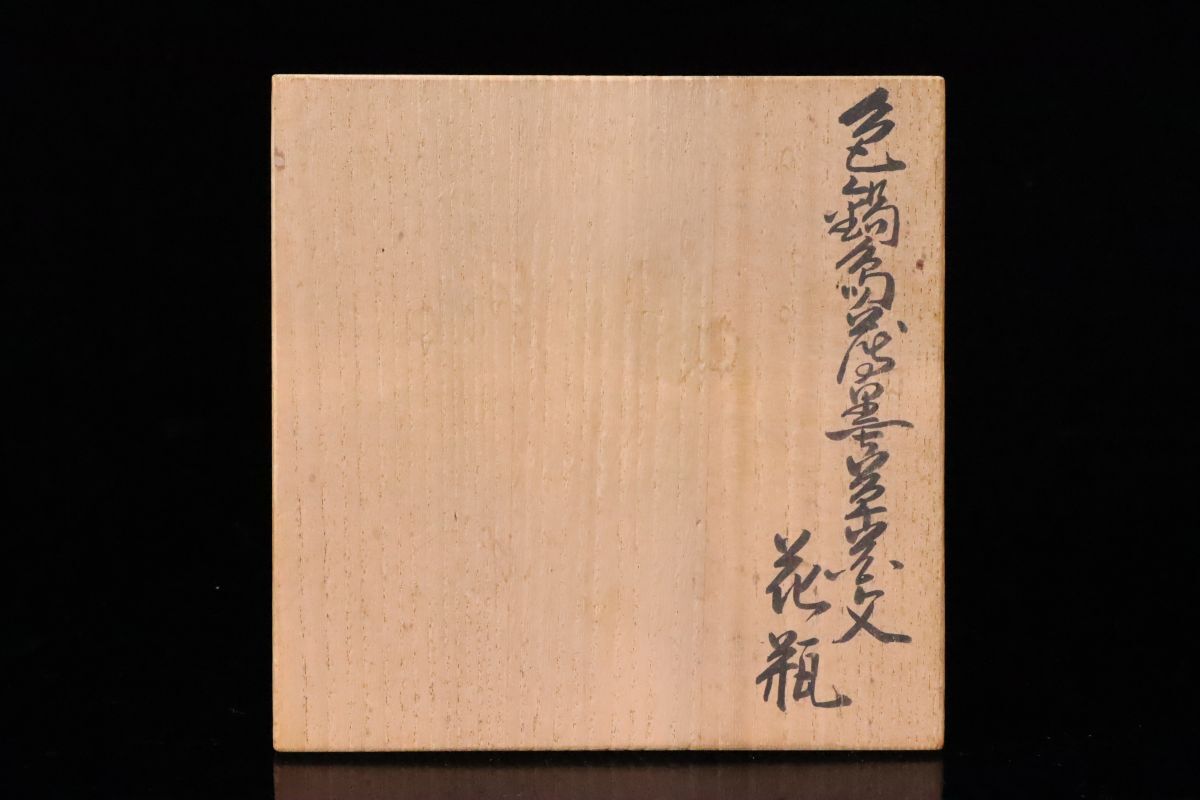 色鍋島薄墨草花文
花瓶